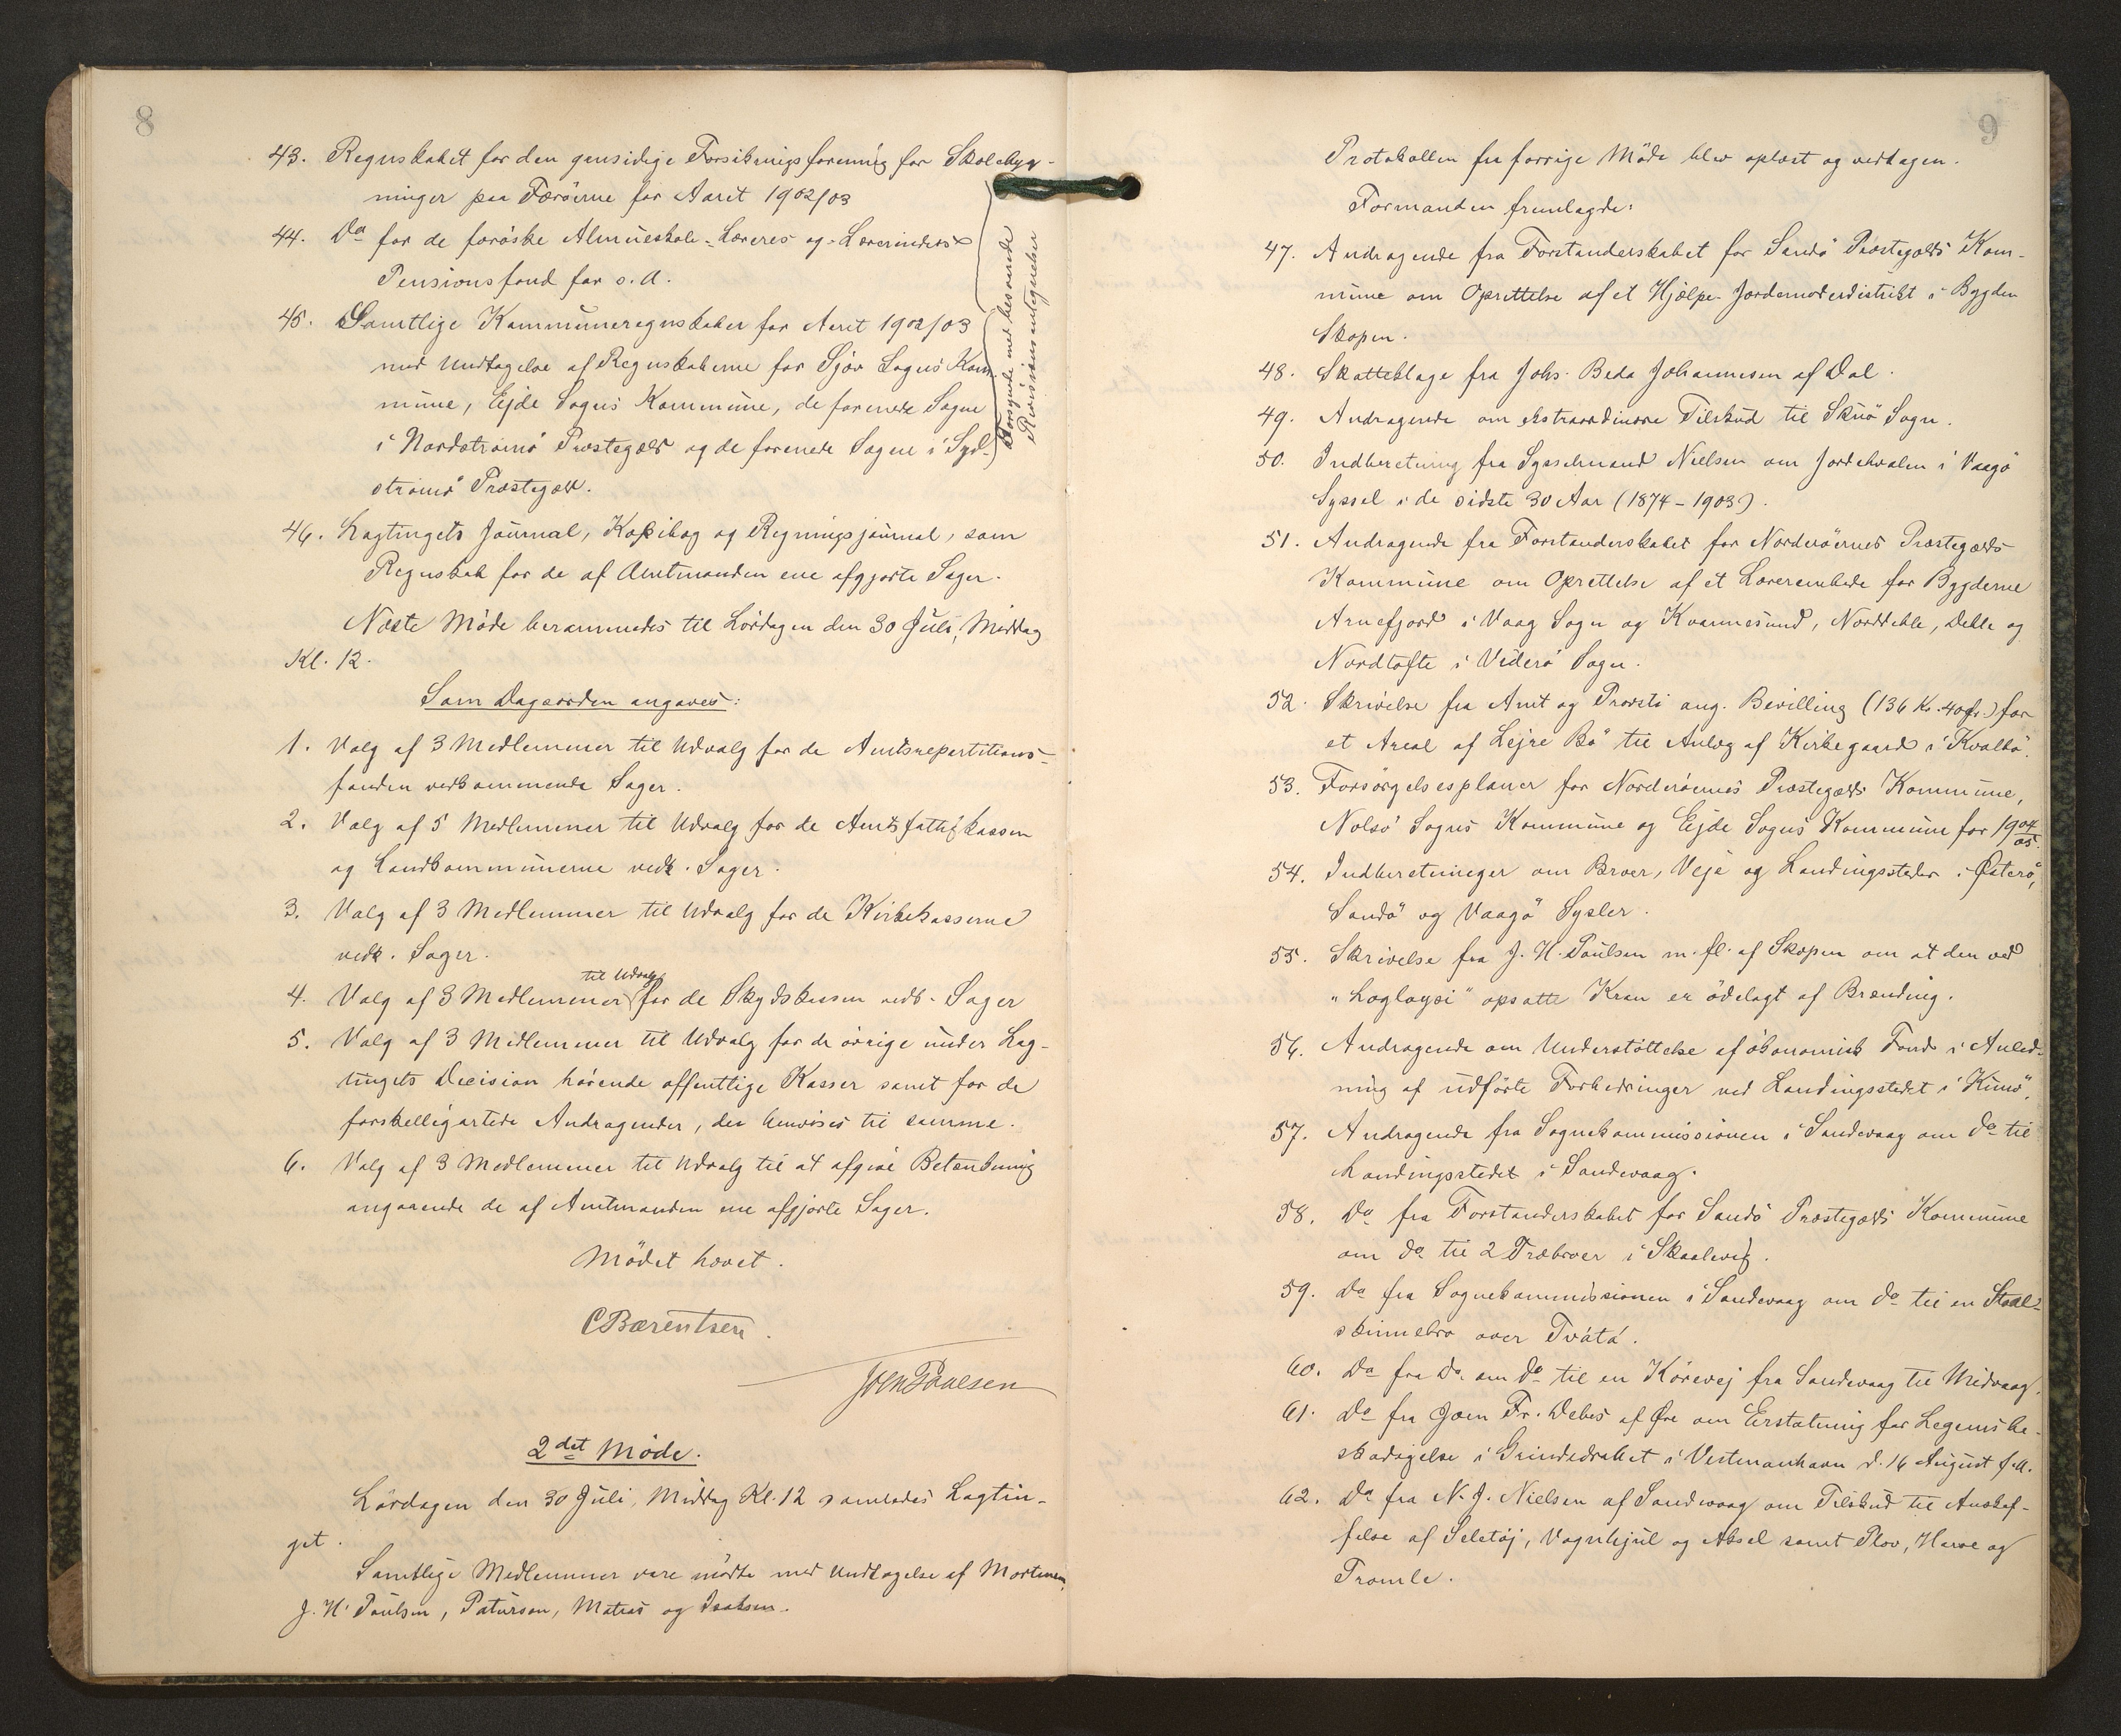 8
43. Regnskabet for den gensidige Forsikringsforening for Skolebyg-
ninger paa Færöerne for Aaret 1902/03
44. Do for de færöske Almueskole-Læreres og-Lærerinders
Pensionsfond for s. A.
45. Samtlige Kommuneregnskaber for Aaret 1902/03
med Undtagelse af Regnskaberne for Sjov Sogns Kom-
mune, Ejde Sogns Kommune, de forenede Sogne
i Nordströmö Præstegæld og de forenede Sogne i Syd-
strömö Præstegæld.
Forsynede med besvarede
Revisionsantegnelser
46. Lagtingets Journal, Kopibog og Regningsjournal, som
Regnskab for de af Amtmanden ene afgjorte Sager.
Næste Möde berammedes til Lördagen den 30 Juli, Middag
Kl. 12.
Som Dagsorden angaves:
1. Valg af 3 Medlemmer til Udvalg for de Amtsrepartitions-
fonden vedkommende Sager.
2. Valg af 5 Medlemmer til Udvalg for de Amtsfattigkassen
og Landkommunerne vedk. Sager.
3. Valg af 3 Medlemmer til Udvalg for de Kirkekasserne
vedk. Sager.
til Udvalg
4. Valg af 3 Medlemmer for de Skydskassen vedk. Sager
5. Valg af 3 Medlemmer til Udvalg for de övrige under Lag-
tingets Decision hörende offentlige Kasser samt for de
forskelligartede Andragender, der henvises til samme.
6. Valg af 3 Medlemmer til Udvalg til at afgive Betænkning
angaaende de af Amtmanden ene afgjorte Sager.
Mödet hævet.
CBærentsen.
Joen Poulsen
2det Möde.
Lördagen den 30 Juli, Middag Kl. 12 samledes Lagtin-
get.
Samtlige Medlemmer vare mödte med Undtagelse af Mortensen,
J. H. Poulsen, Patursson, Matras og Isaksen.
9
Protokollen fra forrige Möde blev oplæst og vedtagen.
Formanden fremlagde:
47. Andragende fra Forstanderskabet for Sandö Præstegælds Kom-
mune om Oprettelse af et Hjælpe-Jordemoderdistrikt i Bygden
Skopen.
48. Skatteklage fra Johs. Beda Johannesen af Dal.
49. Andragende om ekstraordinære Tilskud til Skuö Sogn.
50. Indberetning fra Sysselmand Nielsen om Jordskvalen i Vaagö
Syssel i de sidste 30 Aar (1874-1903).
51. Andragende fra Forstanderskabet for Norderöernes Præstegælds
Kommune om Oprettelse af et Lærerembede for Bygderne
Arnefjord i Vaag Sogn og Kvannesund, Norddeble, Deble og
Nordtofte i Viderö Sogn.
52. Skrivelse fra Amt og Provsti ang. Bevilling (136 Kr. 40 Ør.) for
et Areal af Lejre Bö til Anlæg af Kirkegaard i Kvalbö.
53. Forsörgelsesplaner for Norderöernes Præstegælds Kommune,
Nolsö Sogns Kommune og Ejde Sogns Kommune for 1904/05.
54. Indberetninger om Broer, Veje og Landingssteder i Österö,
Sandö og Vaagö Sysler.
55. Skrivelse fra J. H. Poulsen m. fl. af Skopen om at den ved
"Lagloysi" opsatte Kran er ödelagt af Brænding.
56. Andragende om Understöttelse af ökonomisk Fond i Anled-
ning af udförte Forbedringer ved Landingsstedet i Kunö.
57. Andragende fra Sognekommissionen i Sandevaag om do til
Landingsstedet i Sandevaag.
58. Do fra Forstanderskabet for Sandö Præstegælds Kommune
om do til 2 Træbroer i Skaalevig.
59. Do fra Sognekommissionen i Sandevaag om do til en Staal-
skinnebro over Tvátá.
60. Do fra Do om do til en Körevej fra Sandevaag til Midvaag.
61. Do fra Joen Fr. Debes af Öre om Erstatning for Legemsbe-
skadigelse i Grindedrabet i Vestmanhavn d. 16 August f. A.
62. Do fra N. J. Nielsen af Sandevaag om Tilskud til Anskaf-
felse af Seletöj, Vognhjul og Aksel samt Plov, Harve og
Tromle.